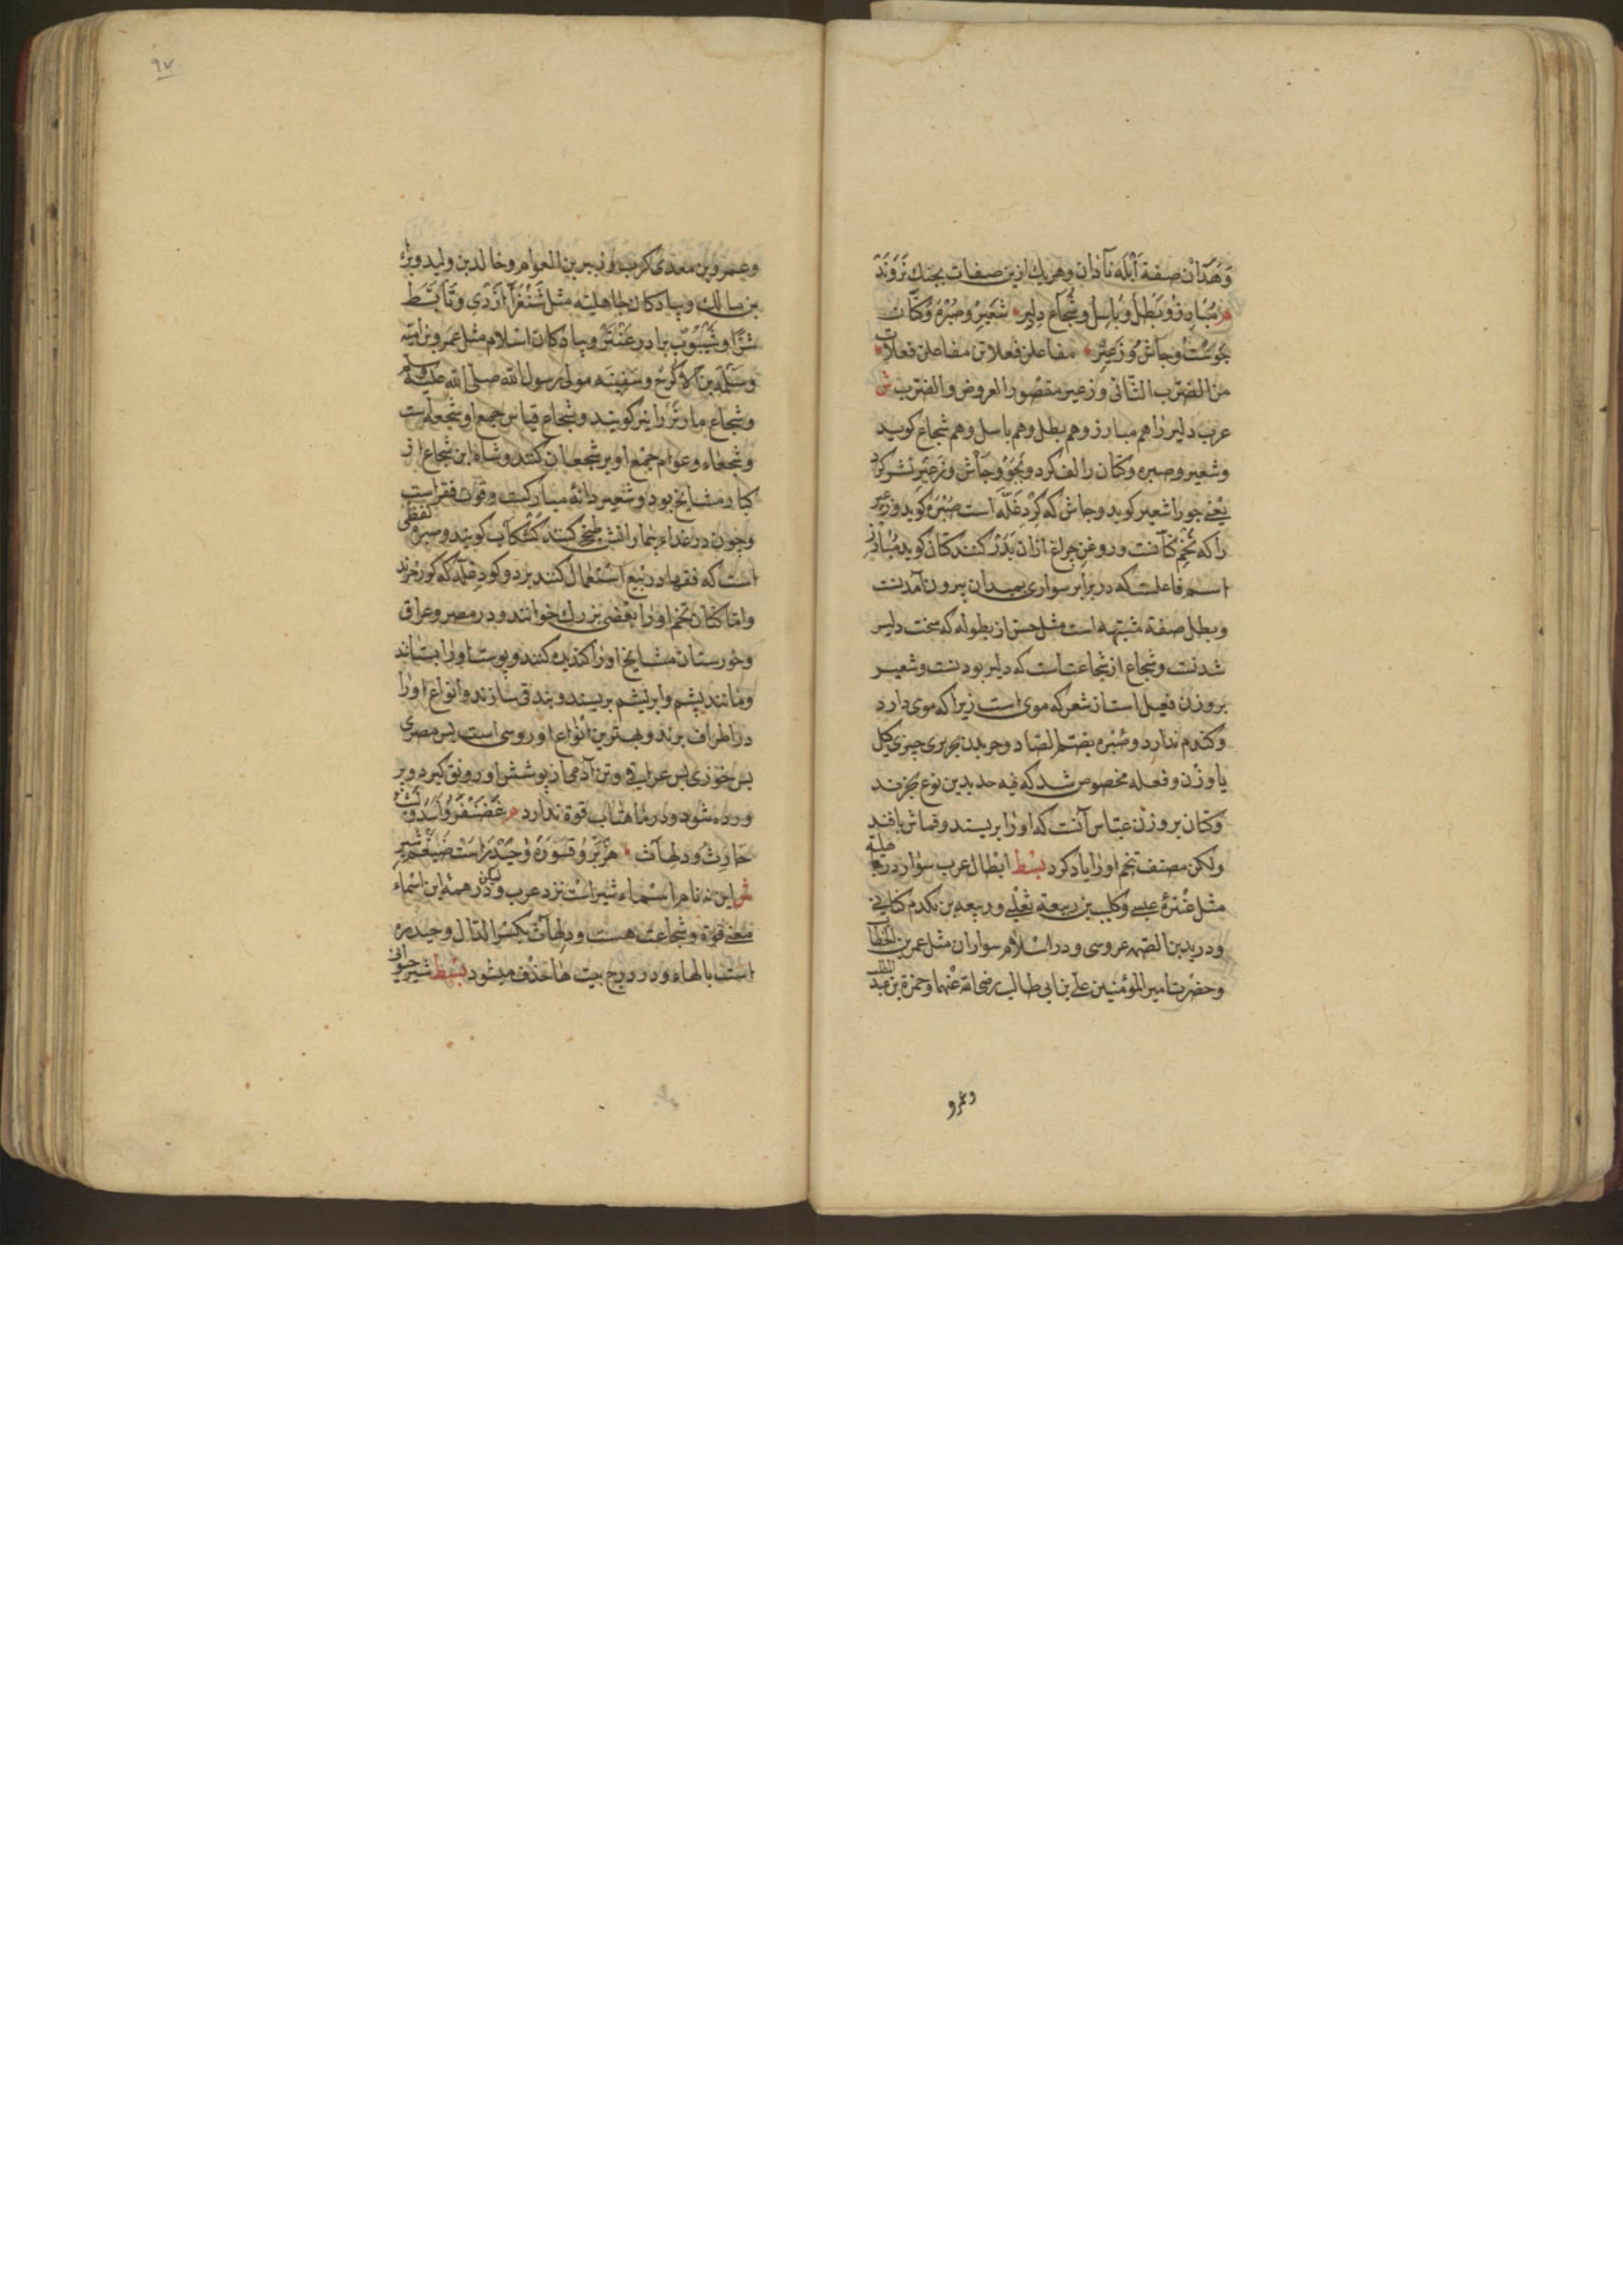 وهدان صفة ابله نادان وهریك ازین صفات بجنك نروند
م مبارز و بطل و باسل و شجاع دلیر شعیر و صبره و کتان
جوست و جاش و زغیر مفاعلن فعلاتن مفاعلن فعلات
من الضرب الثانی وزغیر مقصور العروض والضرب ش
عرب دلیر را هم مبارز و هم بطل و هم باسل و هم شجاع کوید
وشعیر وصبره وکتان را لف کرد و بجو و جاش و زغیر نشر کرد
یعنی جو را شعیر کوید وجاش که کرد غله است صبره کوید وزغیر
را که تخم کتانست و روغن چراغ ازان بدر کنند کتان کوید مبارز
اسم فاعلست که در برابر سواری بمیدان بیرون آمدنست
وبطل صفة مشبهه است مثل حسن از بطوله که سخت دلیر
شدنست وشجاع از شجاعت است که دلیر بودنست وشعیر
بروزن فعیل است از شعر که موی است زیرا که موی دارد
وکندم ندارد وصبره بضم الصاد وخریدن چیزی بکیل
یا وزن وفعله مخصوص شد که بدین نوع بخرند
وکتان بروزن عباس آنست که اورا بریسند وقماش بافند
ولکن مصنف تخم اورا یاد کرد بسط ابطال عرب سوار در جاهلیة
مثل عنترهٔ عبسی وکلیب بن ربیعة تغلبی وربیعه بن مکدم کنانی
ودرید بن الصمه عروسی ودر اسلام سواران مثل عمر بن الخطاب
وحضرت امیر المؤمنین علی بن ابی طالب رضی الله عنهما وحمزة بن عبد المطلب
وعمرو
٩٧
وعمرو بن معدی کرب و زبیر بن العوام وخالد بن ولید وبراء
بن مالك وپیادکان جاهلیه مثل شنفرا ازدی وتأبط
شرا وشیبوب برادر عنتر وپیادکان اسلام مثل عمرو بن امیه
وسلمه بن الاکوع وسفینه مولی رسول الله صلی الله علیه وسلم
وشجاع مار نر را نیز کویند وشجاع قیاس جمع او شجعه است
وشجعاء وعوام جمع او بر شجعان کنند وشاه ابن شجاع از
کبار مشایخ بود وشعیر دانهٔ مبارکست وقوت فقراست
وچون در غداء بیمارانش طبخ کنند کشکاب کویند وصبره لفظی
است که فقها در بیع استعمال کنند برد وکود غله که خرند
واما کتان تخم اورا بعضی بزرك خوانند ودر مصر وعراق
وخوزستان مشایخ اورا کنده کنند وپوست اورا بستانند
ومانند پشم وابریشم بریسند وبند قی سازند وانواع اورا
در اطراف برند وبهترین انواع او روسی است پس مصری
پس خوزی پس عراقی وتن آدمی از پوشش او رونق کیرد وپر
ورده شود ودر ماهتاب قوة ندارد م غضنفر و اسد و لیث
حارث و دلهاث هزبر و قسوره و حیدرست ضیغم شیر
ش این نه نام اسماء شیر است نزد عرب ولیکن در همهٔ این اسماء
معنی قوة وشجاعت هست ودلهاث بکسر الدال وحیدره
است بالهاء ودر درج بیت ها حذف میشود بسط شیر حیوانی